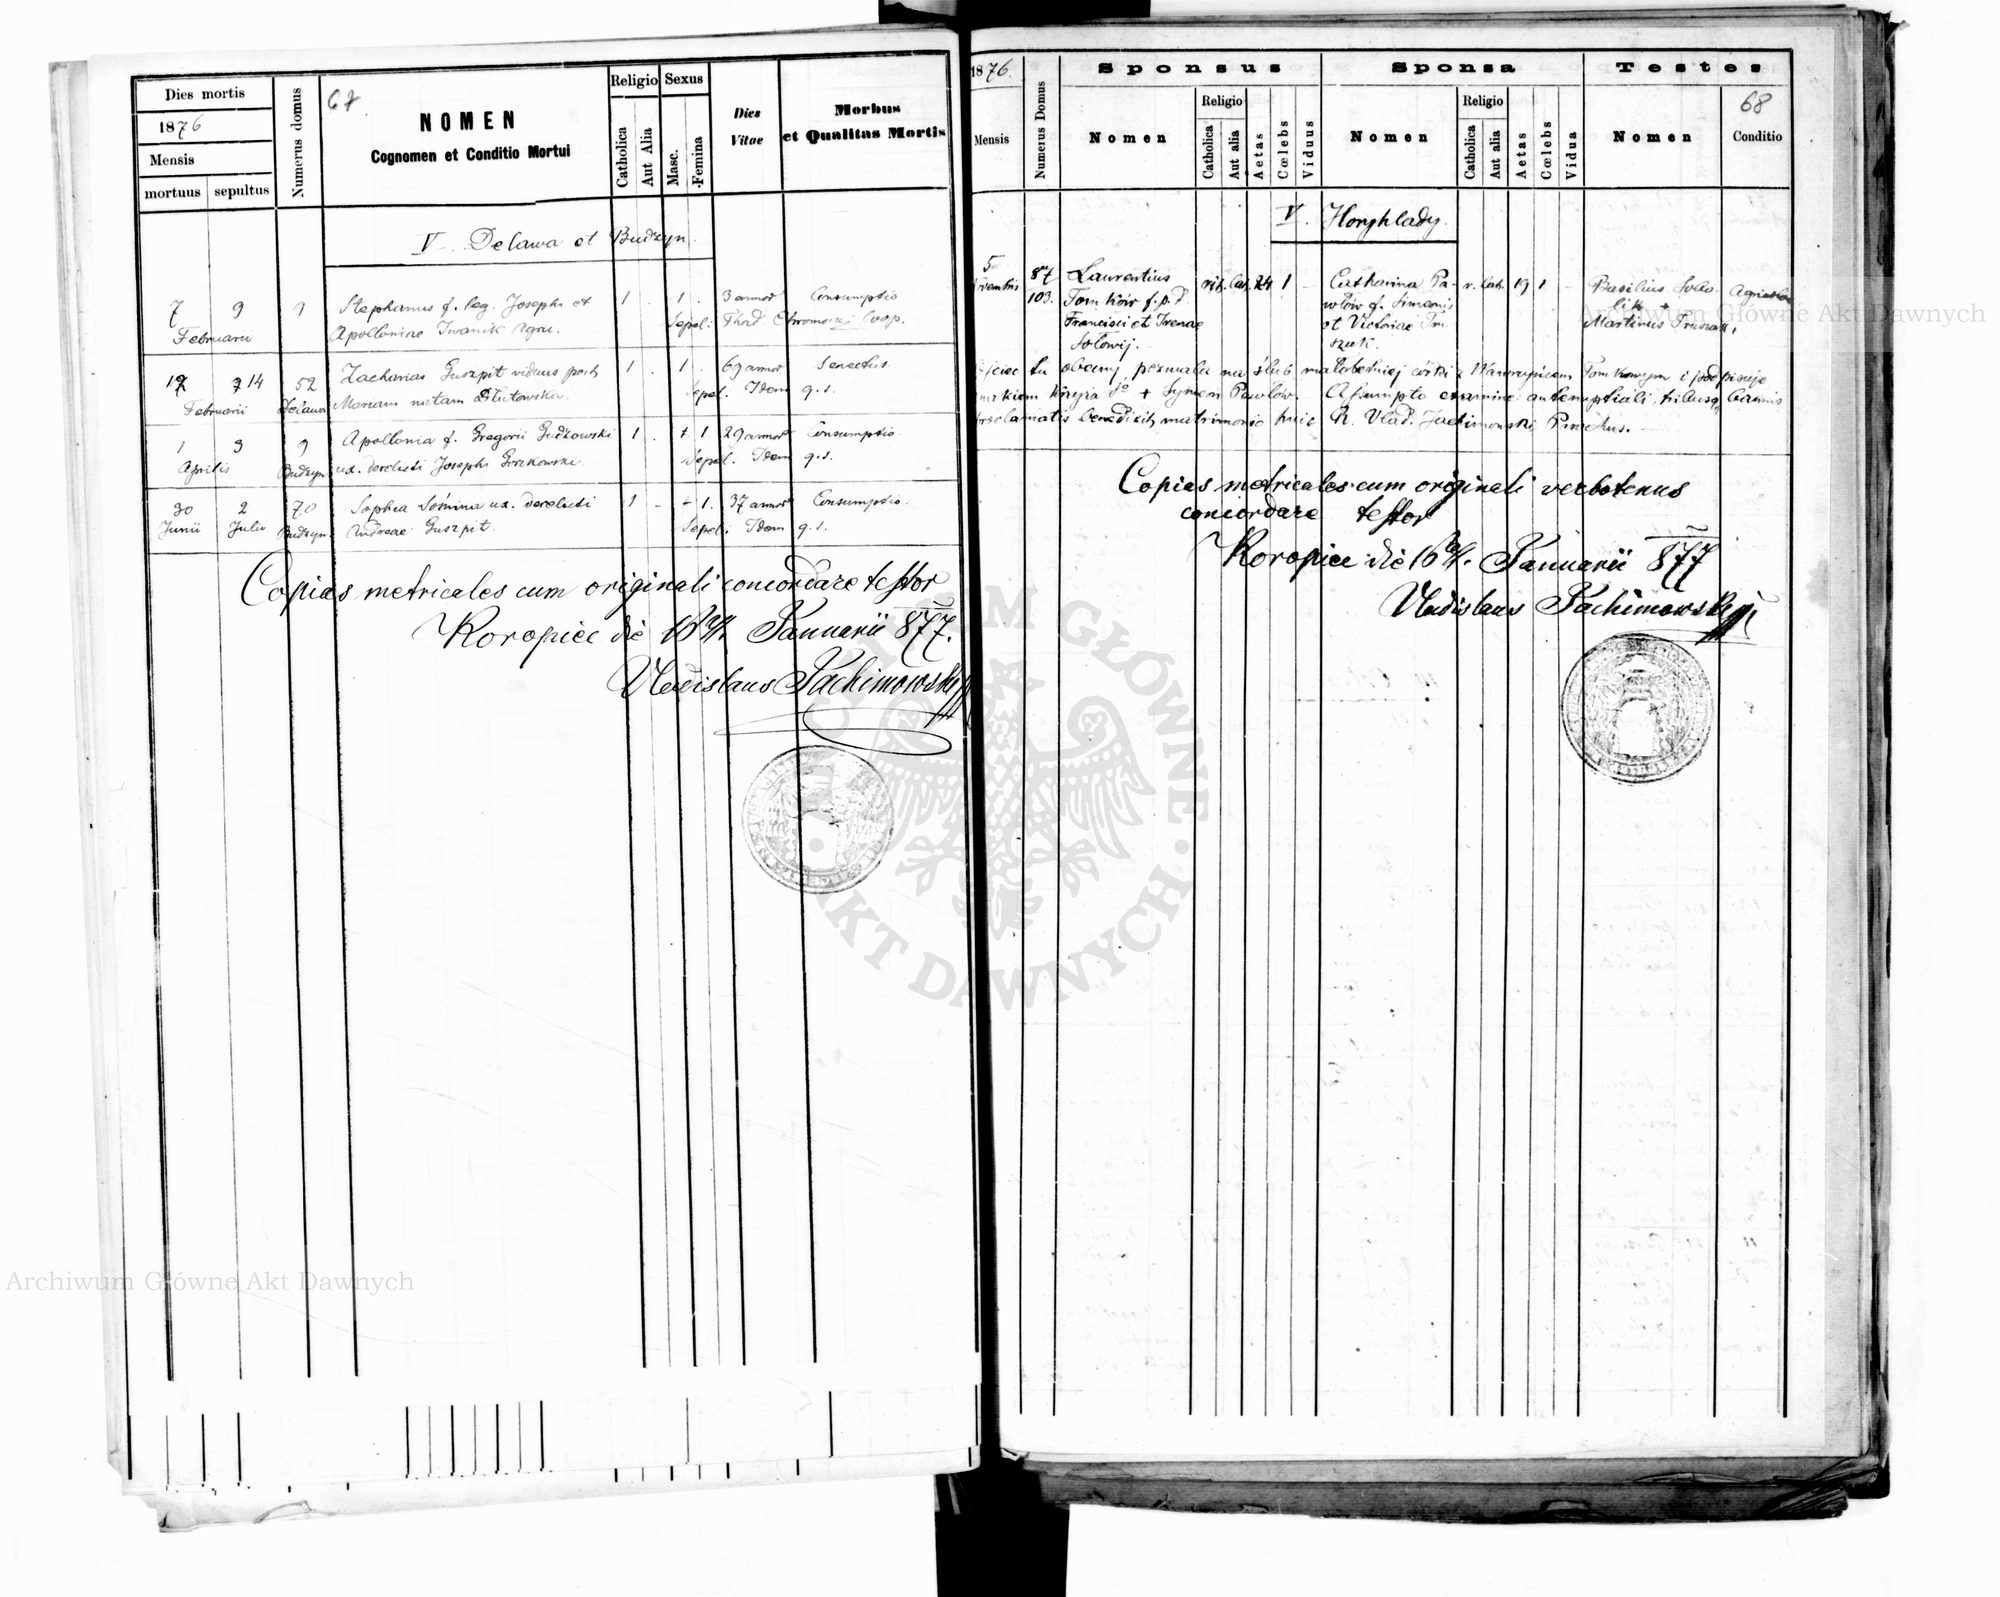 Dies mortis
1876
Mensis
mortuus sepultus
Numerus domus
67.
NOMEN
Cognomen et Conditio Mortui
Religio
Catholica
Aut Alia
Sexus
Masc.
Femina
Dies
Vitae
Morbus
et Qualitas Mortis
V. Delawa et Budzyn.
7 9 9 Stephanus f. leg. Josephi et 1 . 1 . 3 annor Consumptio
Februarii Apolloniae Iwanik agric. Sepel: Thad Chromecij Coop.
12 14 52 Zacharias Guszpit viduus post 1 . 1 . 69 annor Senectus.
Februarii Delawa Mariam natam Sepel. Idem q.s.
1 3 9 Apollonia f. Gregorii Gudkowski 1 . 1 29 annor Consumptio
Aprilis Budzyn ux. derelicti Josephi Gorzkowski Sepel. Idem q.s.
30 2 70 Sophia Sómina ux. derelicti 1 - - 1. 37 annor Consumptio.
Junii Julii Budzyn Andreae Guszpit. Sepel: Idem q.s.
Copias metricales cum originali concordare testor
Koropiec die 16 Januarii 877.
Vladislaus Jachimowski
1876.
Mensis
Numerus Domus
Sponsus
Nomen
Religio
Catholica
Aut alia
Aetas
Cœlebs
Vidus
Sponsa
Nomen
Religio
Catholica
Aut alia
Aetas
Cœlebs
Vidua
Testes
Nomen
68
Conditio
V. Horyhlady.
5 87 Laurentius rit. lat. 24 1 - Catharina Pa- r. lat. 19 1 - Basilius Solo-
103. Tomków f. p. d. wlów f. Simeonis lik +
Francisci et Irenae et Victoriae Tru- Martinus Truszak,
Solowij. szuk.
Ojciec tu obecny pozwala na ślub małoletniej córki z Wawrzyńcem Tomkowym i podpisuje
znakiem krzyża + Symeon Pawlów. Assumpto examine antenuptiali, tribusq bannis
proclamatis benedixit matrimonio huic R. Vlad. Jachimowski, Parochus.
Copias metricales cum originali verbotenus
concordare testor
Koropiec die 16 Januarii 877
Vladislaus Jachimowski
Archiwum Główne Akt Dawnych
Archiwum Główne Akt Dawnych